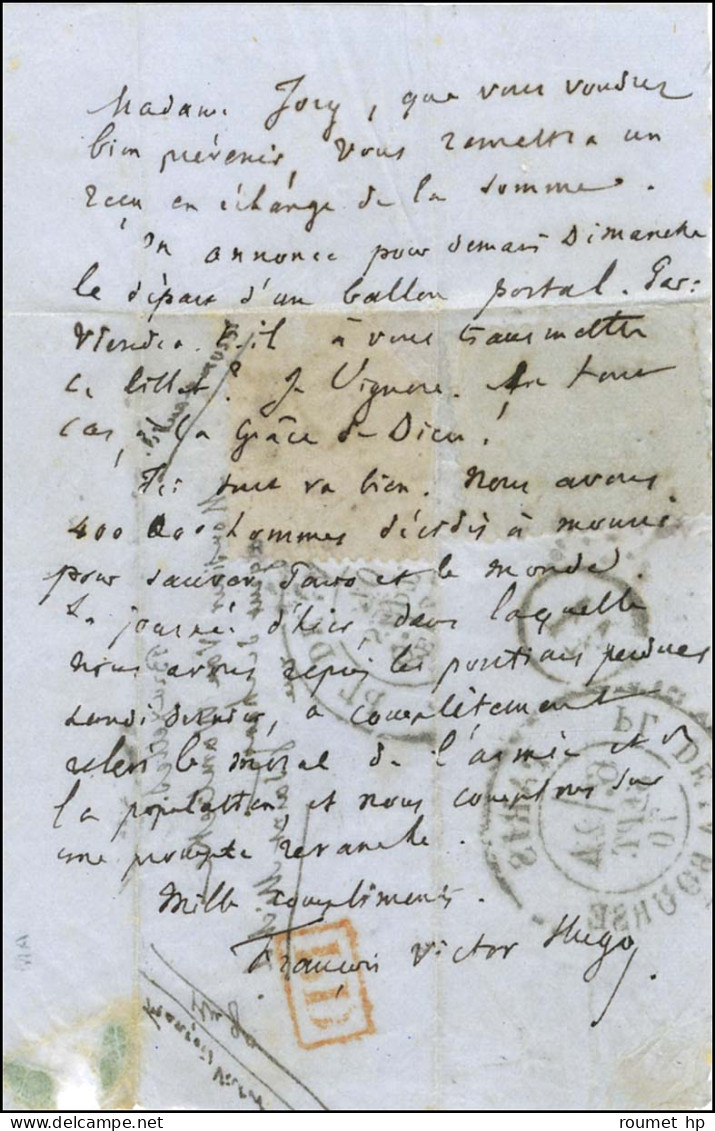 Madame Jory, que vous voudrez
bien prévenir, vous remettra un
reçu en échange de la somme.
On annonce pour demain Dimanche
le départ d'un ballon postal. Par-
viendra-t-il à vous transmettre
ce billet ? Je l'ignore. En tout
cas, à la grâce de Dieu !
Ici tout va bien. Nous avons
400 000 hommes décidés à mourir
pour sauver Paris et le monde.
La journée d'hier dans laquelle
nous avons repris les positions perdues
Lundi dernier, a complètement
relevé le moral de l'armée et de
la population, et nous comptons sur
une prompte revanche.
Mille compliments.
François Victor Hugo
PD
PL. DE LA BOURSE
PARIS
SEPT.
70
roumet hp